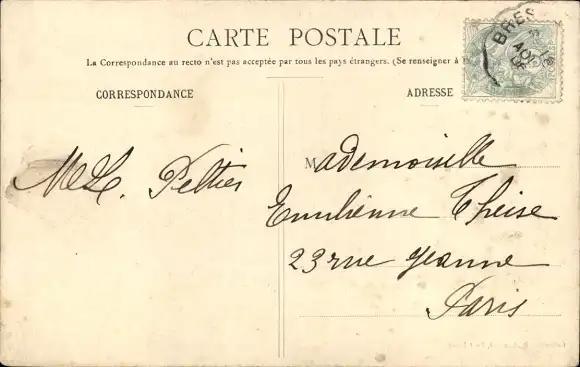 CARTE POSTALE
La Correspondance au recto n'est pas acceptée par tous les pays étrangers. (Se renseigner à
CORRESPONDANCE
ADRESSE
Mademoiselle
Peltier
Emilienne Theise
23 rue Jeanne
Paris
BRES